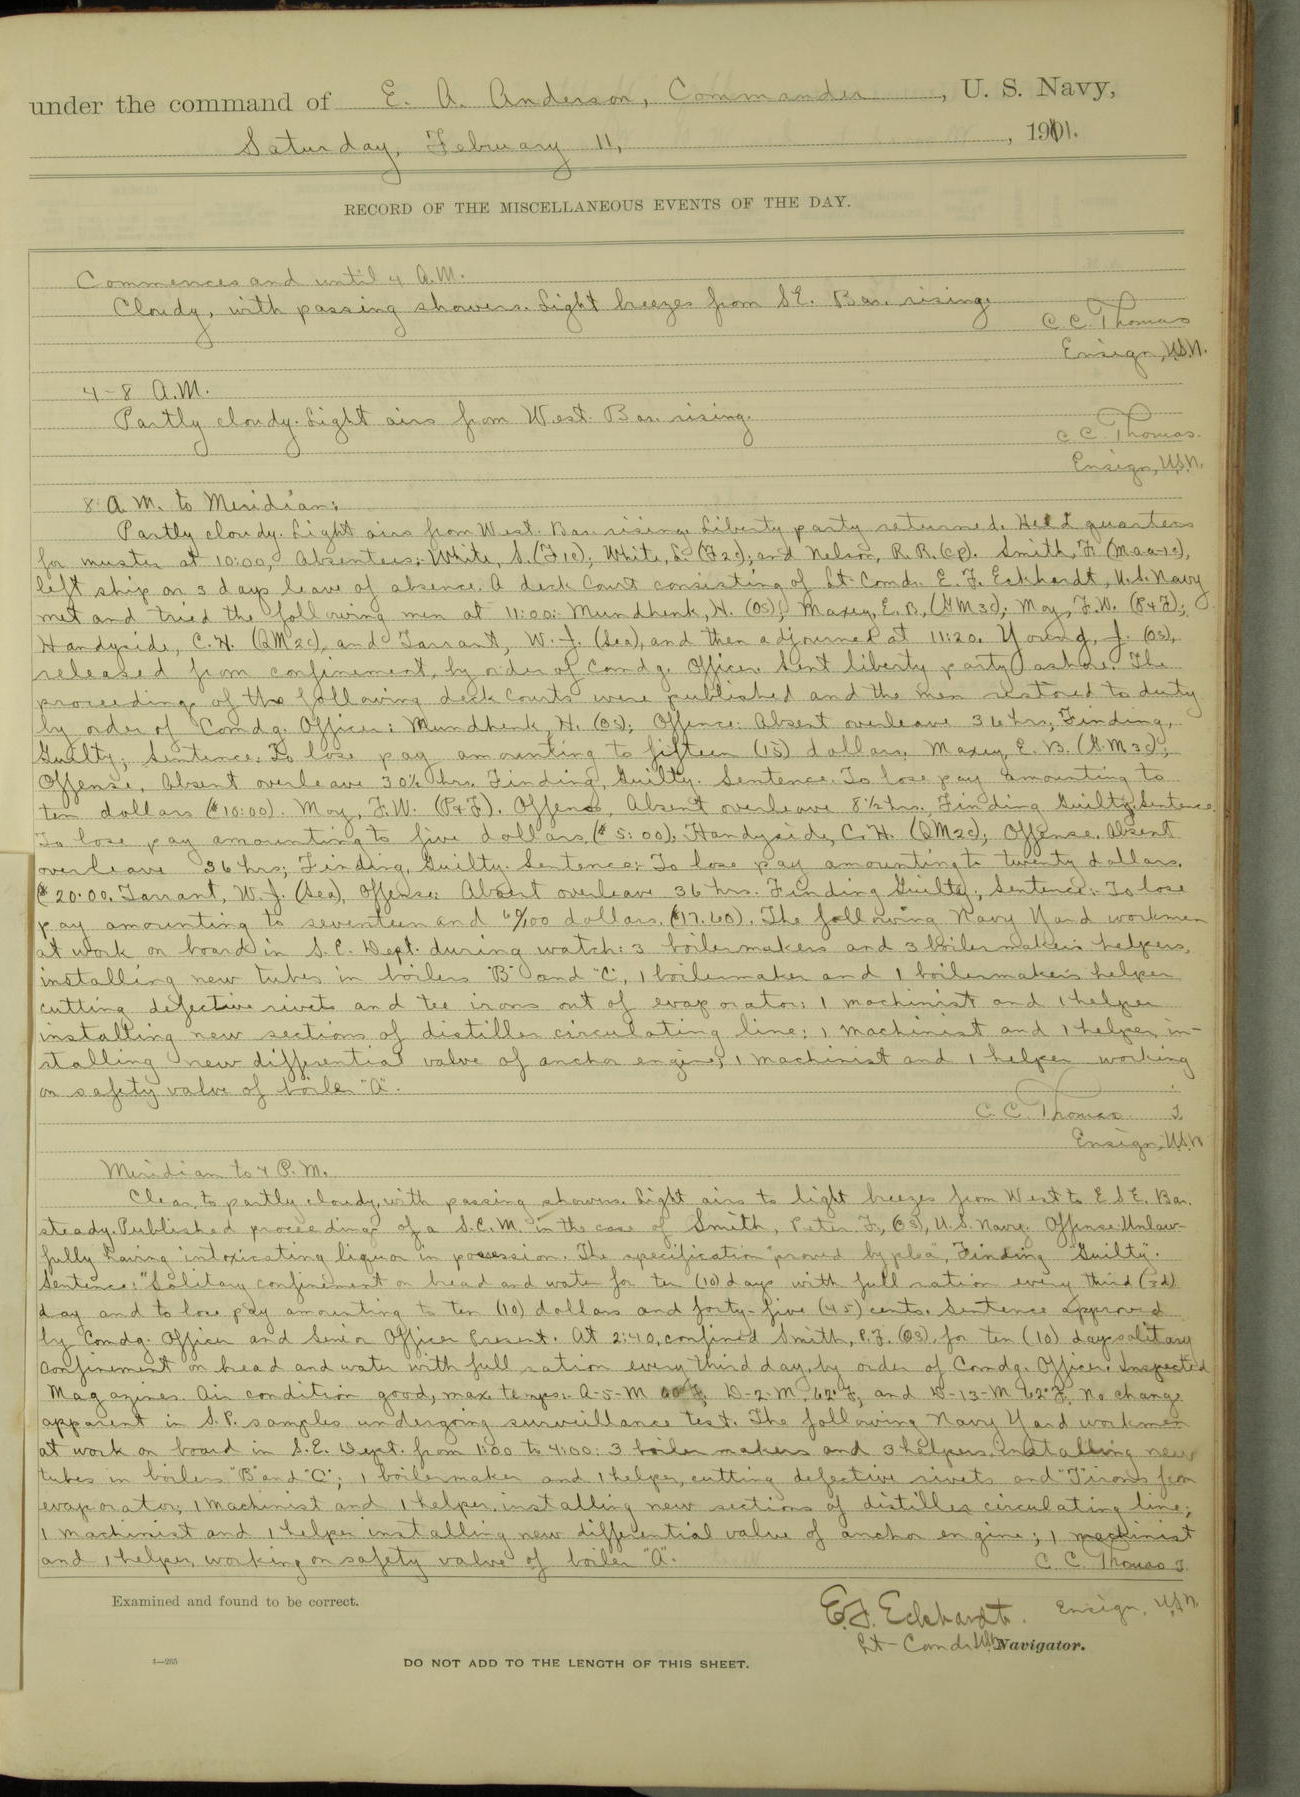 under the command of E. A. Anderson, Commander, U. S. Navy,
Saturday, February 11, , 1911.
RECORD OF THE MISCELLANEOUS EVENTS OF THE DAY.
Commences and until 4 A.M.
Cloudy, with passing showers. Light breezes from SE. Bar. rising.
C. C. Thomas
Ensign, U.S.N.
4-8 A.M.
Partly cloudy. Light airs from West. Bar. rising.
C C Thomas.
Ensign, U.S.N.
8 A.M. to Meridian:
Partly cloudy. Light airs from West. Bar. rising. Liberty party returned. Held quarters
for muster at 10:00, Absentees: White, S. (F1c); White, L. (F2c); and Nelson, R.R. (Cp). Smith, F. (Maa-1c),
left ship on 3 days leave of absence. A deck Court consisting of Lt-Comdr. E. F. Eckhardt, U.S. Navy
met and tried the following men at 11:00: Mundhenk, H. (OS); Maxey, E. B. (GM3c); May, F.W. (P&F);
Handyside, C.H. (QM2c), and Tarrant, W. J. (Sea), and then adjourned at 11:20. Young, J. (OS),
released from confinement, by order of Comdg. Officer. Sent liberty party ashore. The
proceedings of the following deck Courts were published and the men restored to duty
by order of Comdg. Officer: Mundhenk, H. (OS); Offence: Absent overleave 36 hrs; Finding,
Guilty; Sentence: To lose pay amounting to fifteen (15) dollars, Maxey, E. B. (G.M3c);
Offense, Absent overleave 30½ hrs. Finding, Guilty. Sentence. To lose pay amounting to
ten dollars ($10:00). May, F.W. (P&F). Offense, Absent overleave 8½ hrs, Finding Guilty, Sentence
To lose pay amounting to five dollars, ($5:00); Handyside, C.H. (QM2c); Offense. Absent
overleave 36 hrs; Finding, Guilty. Sentence: To lose pay amounting to twenty dollars.
($20.00. Tarrant, W. J. (Sea), Offense: Absent overleave 36 hrs. Finding Guilty; Sentence: To lose
pay amounting to seventeen and 60/100 dollars. ($17.60). The following Navy Yard workmen
at work on board in S.E. Dept. during watch: 3 boilermakers and 3 boilermaker's helpers,
installing new tubes in boilers "B" and "C", 1 boilermaker and 1 boilermaker's helper
cutting defective rivets and tee irons out of evaporator: 1 machinist and 1 helper
installing new sections of distiller circulating line: 1 machinist and 1 helper, in-
stalling new differential valve of anchor engine; 1 machinist and 1 helper working
on safety valve of boiler "A".
C. C. Thomas
Ensign, U.S.N
Meridian to 4 P.M.
Clear to partly cloudy, with passing showers. Light airs to light breezes from West to E S E. Bar.
steady. Published proceedings of a S.C.M. in the case of Smith, Peter F., (OS), U.S. Navy. Offense: Unlaw-
fully having intoxicating liquor in possession. The specification "proved by plea", Finding "Guilty".
Sentence: "Solitary confinement on bread and water for ten (10) days with full ration every third (3d)
day and to lose pay amounting to ten (10) dollars and forty-five (45) cents. Sentence approved
by Comdg. Officer and Senior Officer Present. At 2:40, confined Smith, P.F. (OS), for ten (10) days solitary
confinement on bread and water with full ration every third day, by order of Comdg. Officer. Inspected
Magazines. Air condition good, max. temps: A-5-M F. D-2-M. 62°F, and D-13-M 62°F. No change
apparent in S.P. samples undergoing surveillance test. The following Navy Yard workmen
at work on board in S.E. Dept. from 1:00 to 4:00: 3 boilermakers and 3 helpers, installing new
tubes in boilers "B" and "C"; 1 boilermaker and 1 helper, cutting defective rivets and "T" irons from
evaporator; 1 machinist and 1 helper, installing new sections of distiller circulating line;
1 machinist and 1 helper installing new differential valve of anchor engine; 1 machinist
and 1 helper, working on safety valve of boiler "A".
C. C. Thomas
Examined and found to be correct.
Ensign, U.S.N.
E. F. Eckhardt.
Lt-Comdr. USN Navigator.
DO NOT ADD TO THE LENGTH OF THIS SHEET.